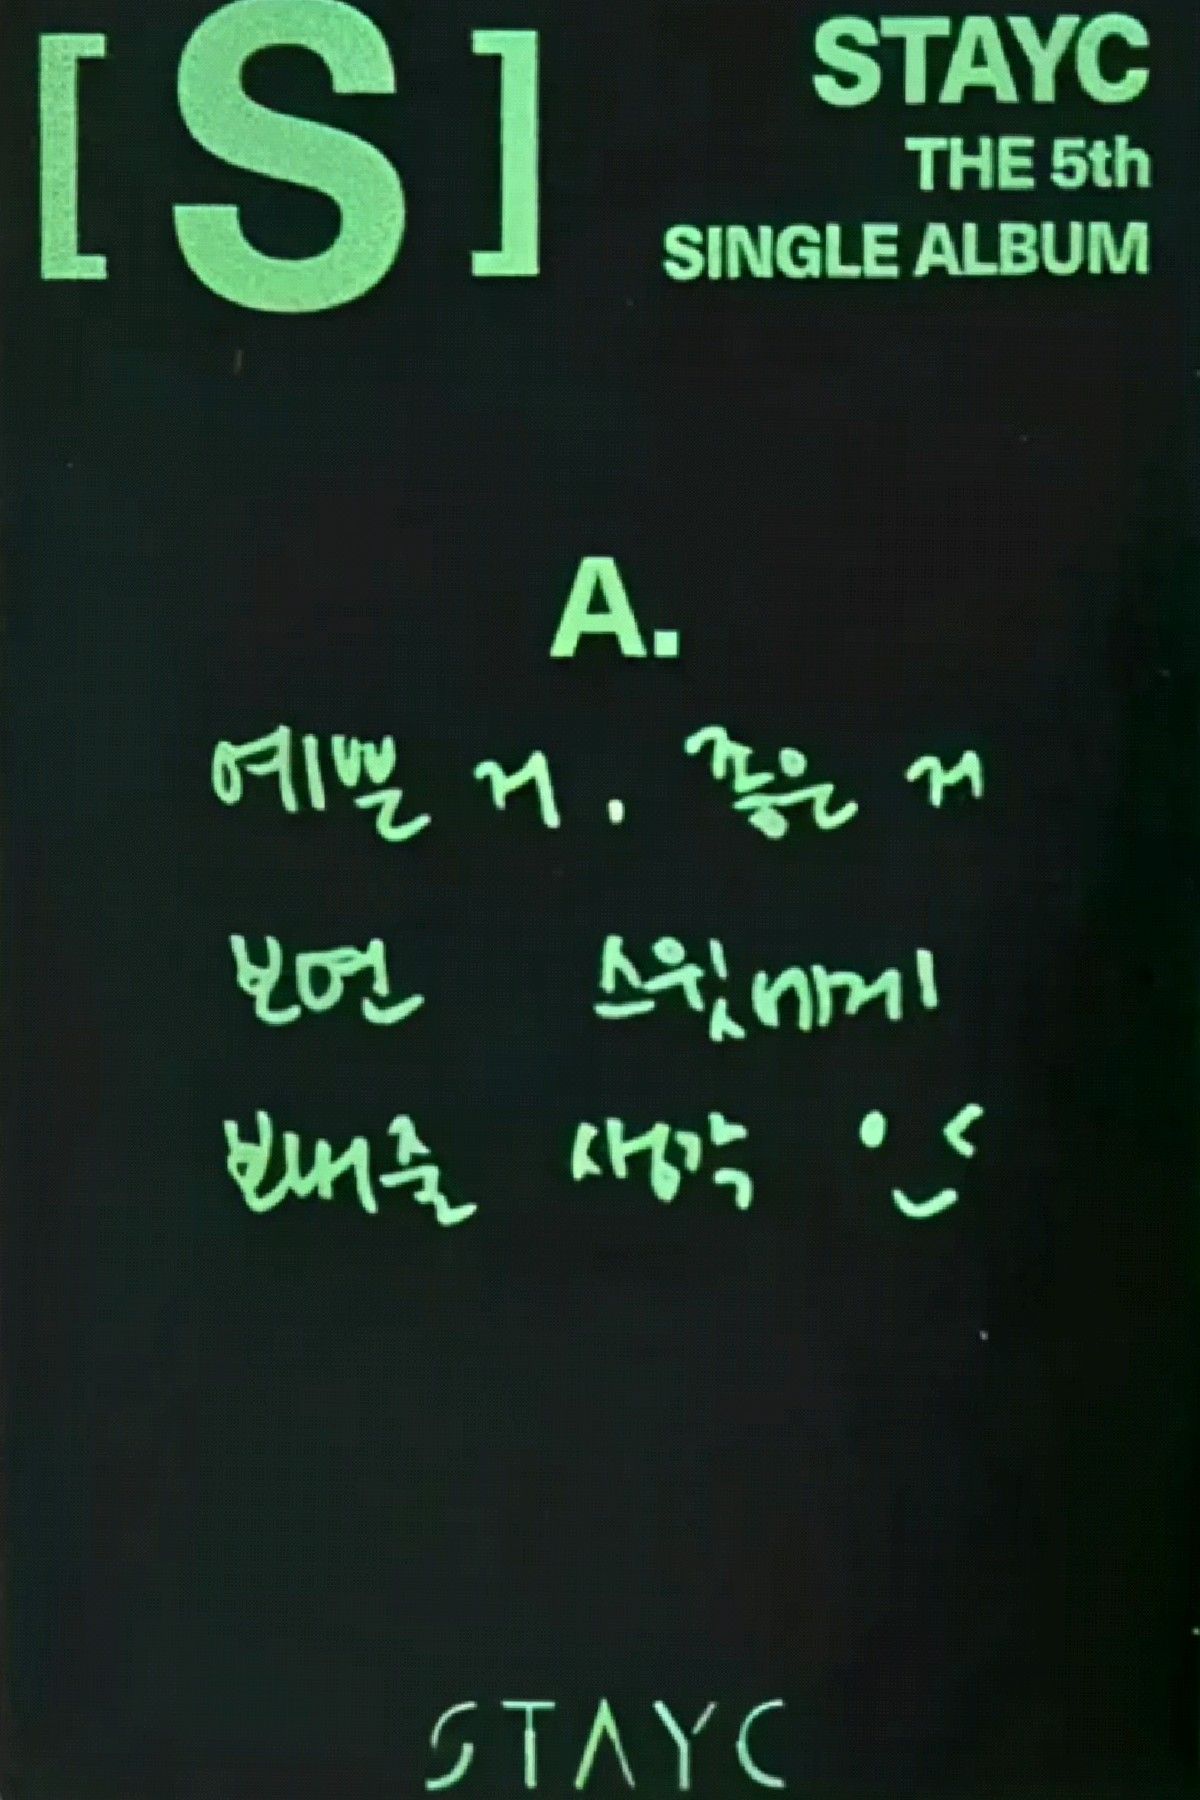 [S]
STAYC
THE 5th
SINGLE ALBUM
A.
예쁜 거. 좋은 거
보면 스윗에게
보내줄 생각
STAYC